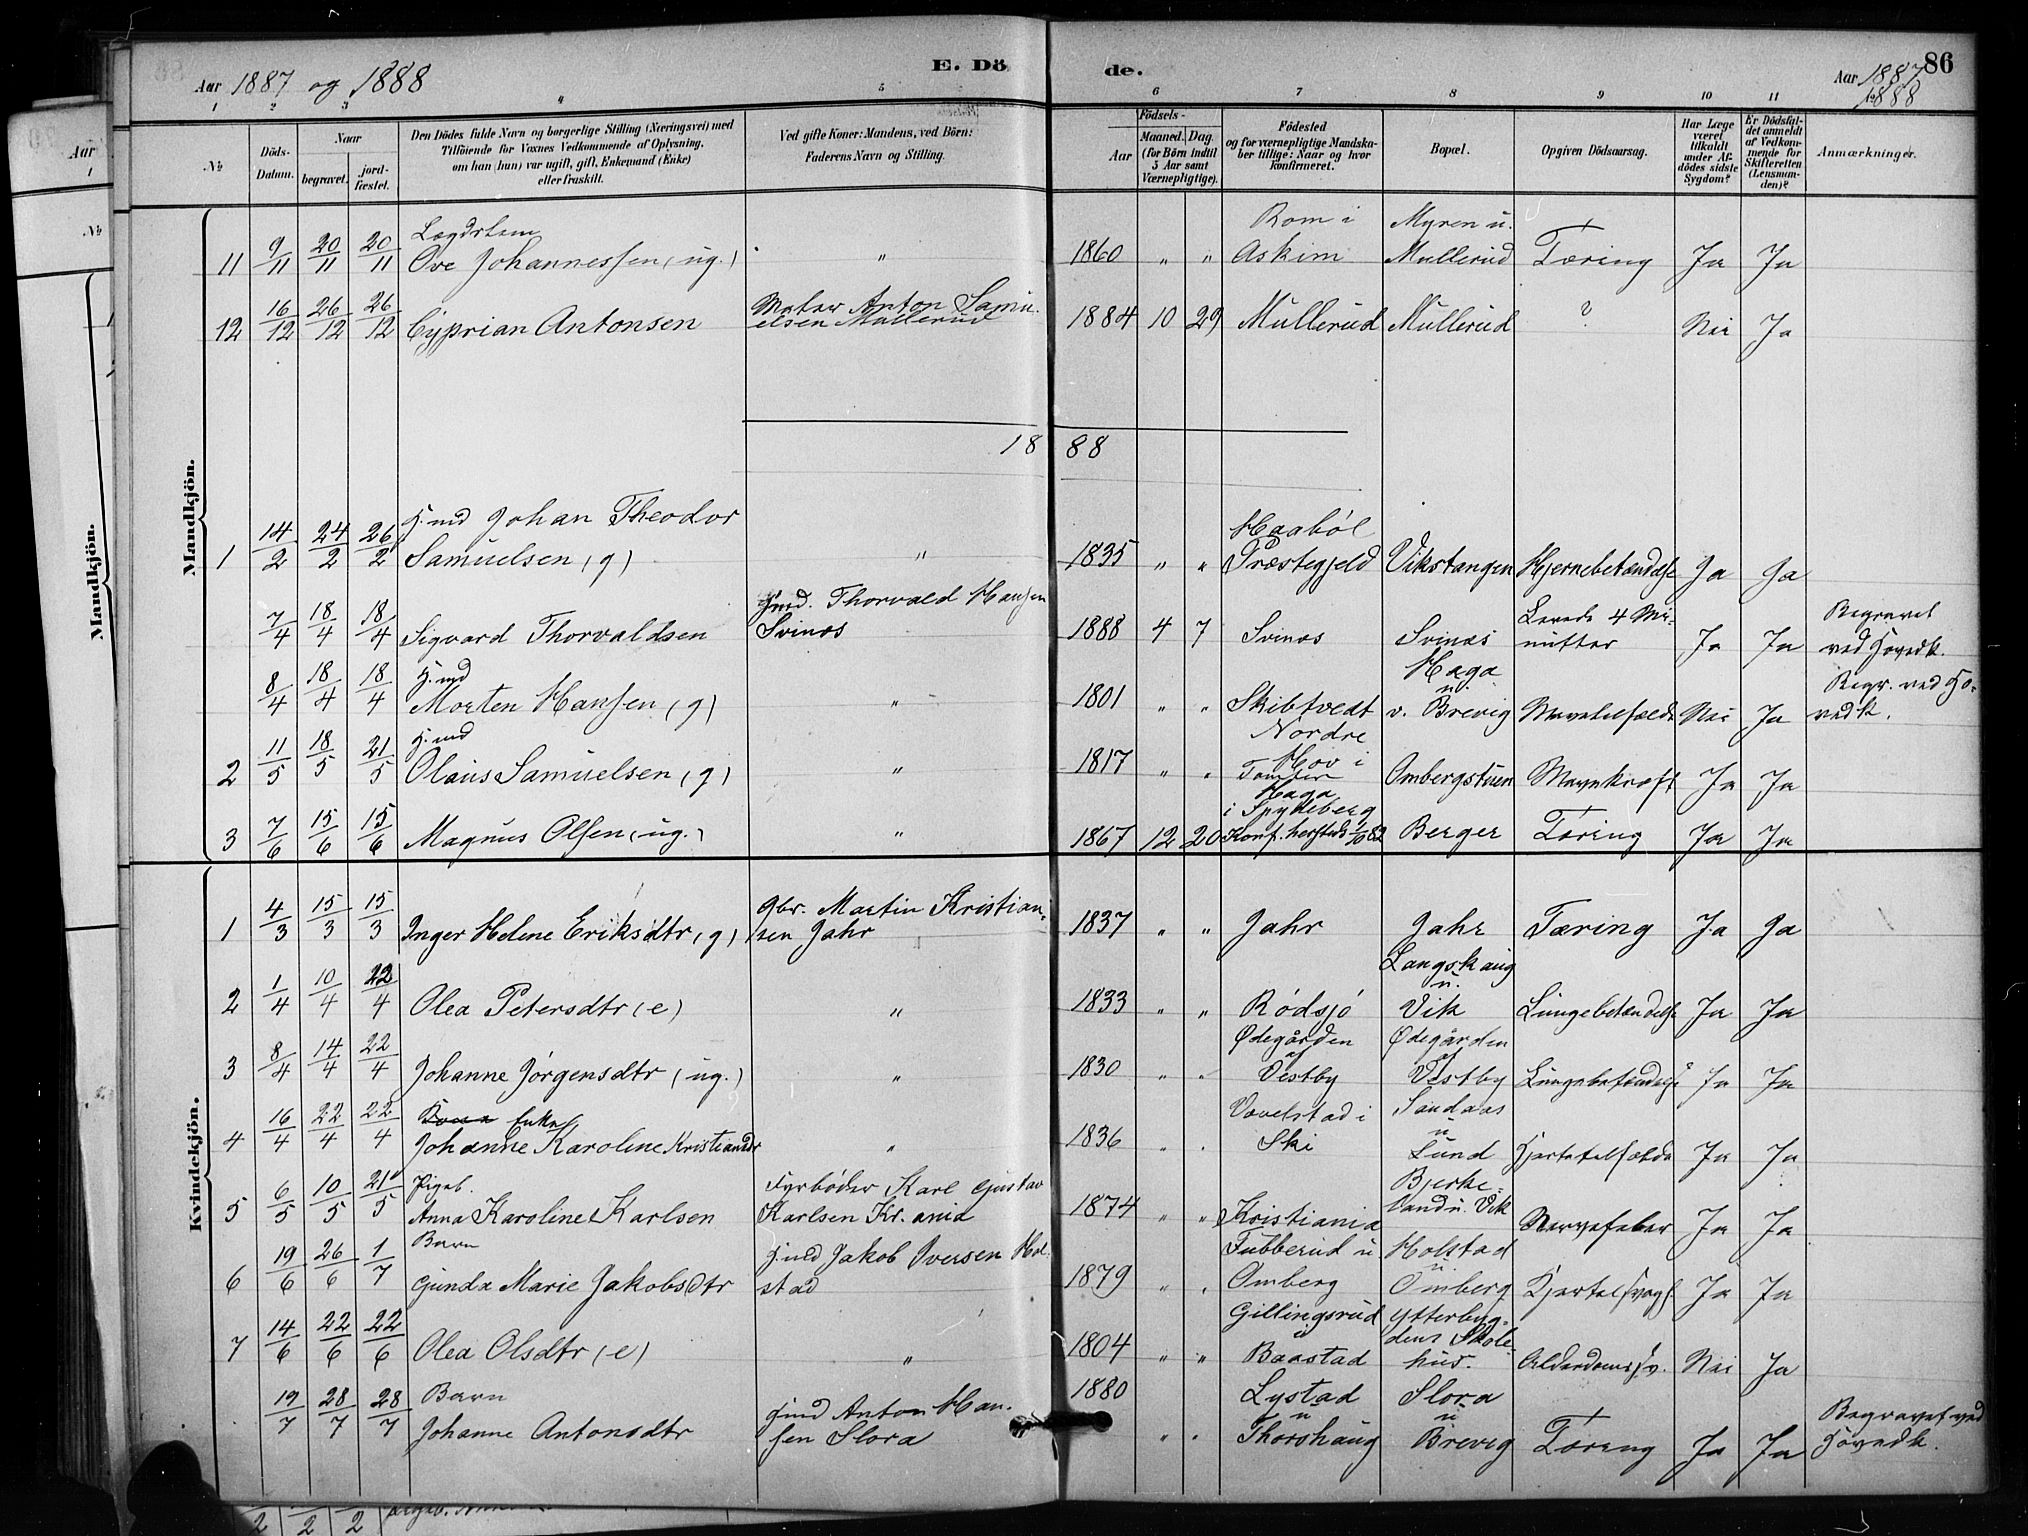 Aar 1887 og 1888
E. Dö
de.
Aar 1887
1888
86
1 2 3 4 5 6 7 8 9 10 11
No
Döds-
Datum.
Naar
begravet.
jord-
fæstet.
Den Dödes fulde Navn og borgerlige Stilling (Næringsvei) med
Tilföiende for Voxnes Vedkommende af Oplysning,
om han (hun) var ugift, gift, Enkemand (Enke)
eller fraskilt.
Ved gifte Koner: Mandens, ved Börn:
Faderens Navn og Stilling.
Födsels-
Aar
Maaned. Dag
(for Börn indtil
5 Aar samt
Værnepligtige).
Födested
og for værnepligtige Mandska-
ber tillige: Naar og hvor
konfirmeret.
Bopæl.
Opgiven Dödsaarsag.
Har Læge
været
tilkaldt
under Af-
dödes sidste
Sygdom?
Er Dödsfal-
det anmeldt
af Vedkom-
mende for
Skifteretten
(Lensman-
den)?
Anmærkninger.
Mandkjön.
Lægdslem Rom i Myren u.
11 9/11 20/11 20/11 Ove Johannessen (ug.) " 1860 " " Askim Mullerud Tæring Ja Ja
Anton Samu-
12 16/12 26/12 26/12 Cyprian Antonsen elsen Mullerud 1884 10 29 Mullerud Mullerud ? Nei Ja
1888
H.md Johan Theodor Haabøl
1 14/2 24/2 26/2 Samuelsen (g) " 1835 " " Præstegjeld Vikstangen Hjernebetændelse Ja Ja
Hmd. Thorvald Hansen Levede 4 Mi- Begravet
7/4 18/4 18/4 Sigvard Thorvaldsen Svinæs 1888 4 7 Svinæs Svinæs nutter Ja Ja ved Hovedk.
H.md Haga u. Begr. ved Ho-
8/4 18/4 18/4 Morten Hansen (g) " 1801 " " Skibtvedt v. Brevig Nei Ja vedk.
H.md Nordre Hov i
2 11/5 18/5 21/5 Olaus Samuelsen (g) " 1817 " " Tomter Ombergstuen Mavekræft Ja Ja
Haga
i Spydeberg
3 7/6 15/6 15/6 Magnus Olsen (ug.) " 1867 12 20 Konf. 82 Berger Tæring Ja Ja
Kvindekjön.
Gbr. Martin Kristian-
1 4/3 15/3 15/3 Inger Helene Eriksdtr (g) sen Jahr 1837 " " Jahr Jahr Tæring Ja Ja
Langskaug u.
2 1/4 10/4 22/4 Olea Petersdtr (e) " 1833 " " Rødsjø Vik Lungebetændelse Ja Ja
Ødegården af Ødegården af
3 8/4 14/4 22/4 Johanne Jørgensdtr (ug.) " 1830 " " Vestby Vestby Lungebetændelse Ja Ja
Kone Enke Vevelstad i Sandaas u
4 16/4 22/4 22/4 Johanne Karoline Kristiansdr " 1836 " " Ski Lund Ja Ja
Pigeb. Fyrbøder Karl Gustav Bjerke-
5 6/5 10/5 21/5 Anna Karoline Karlsen Karlsen Kr.ania 1874 " " Kristiania land u. Vik Nervefeber Ja Ja
Barn H.md Jakob Iversen Hol- Fubberud u Holstad u
6 19/6 26/6 1/7 Gunda Marie Jakobsdtr stad 1879 " " Omberg Omberg Kjertelsvags. Ja Ja
Gillingsrud i Ytterbyg-
dens Skole-
7 14/6 22/6 22/6 Olea Olsdtr (e) " 1804 " " Baastad hus. Alderdomssv. Nei Ja
Barn Hmd Anton Han- 1880 Lystad u Slora u Begravet ved
19/7 28/7 28/7 Johanne Antonsdtr sen Slora " " Thorshaug Brevig Tæring Ja Ja Hovedk.